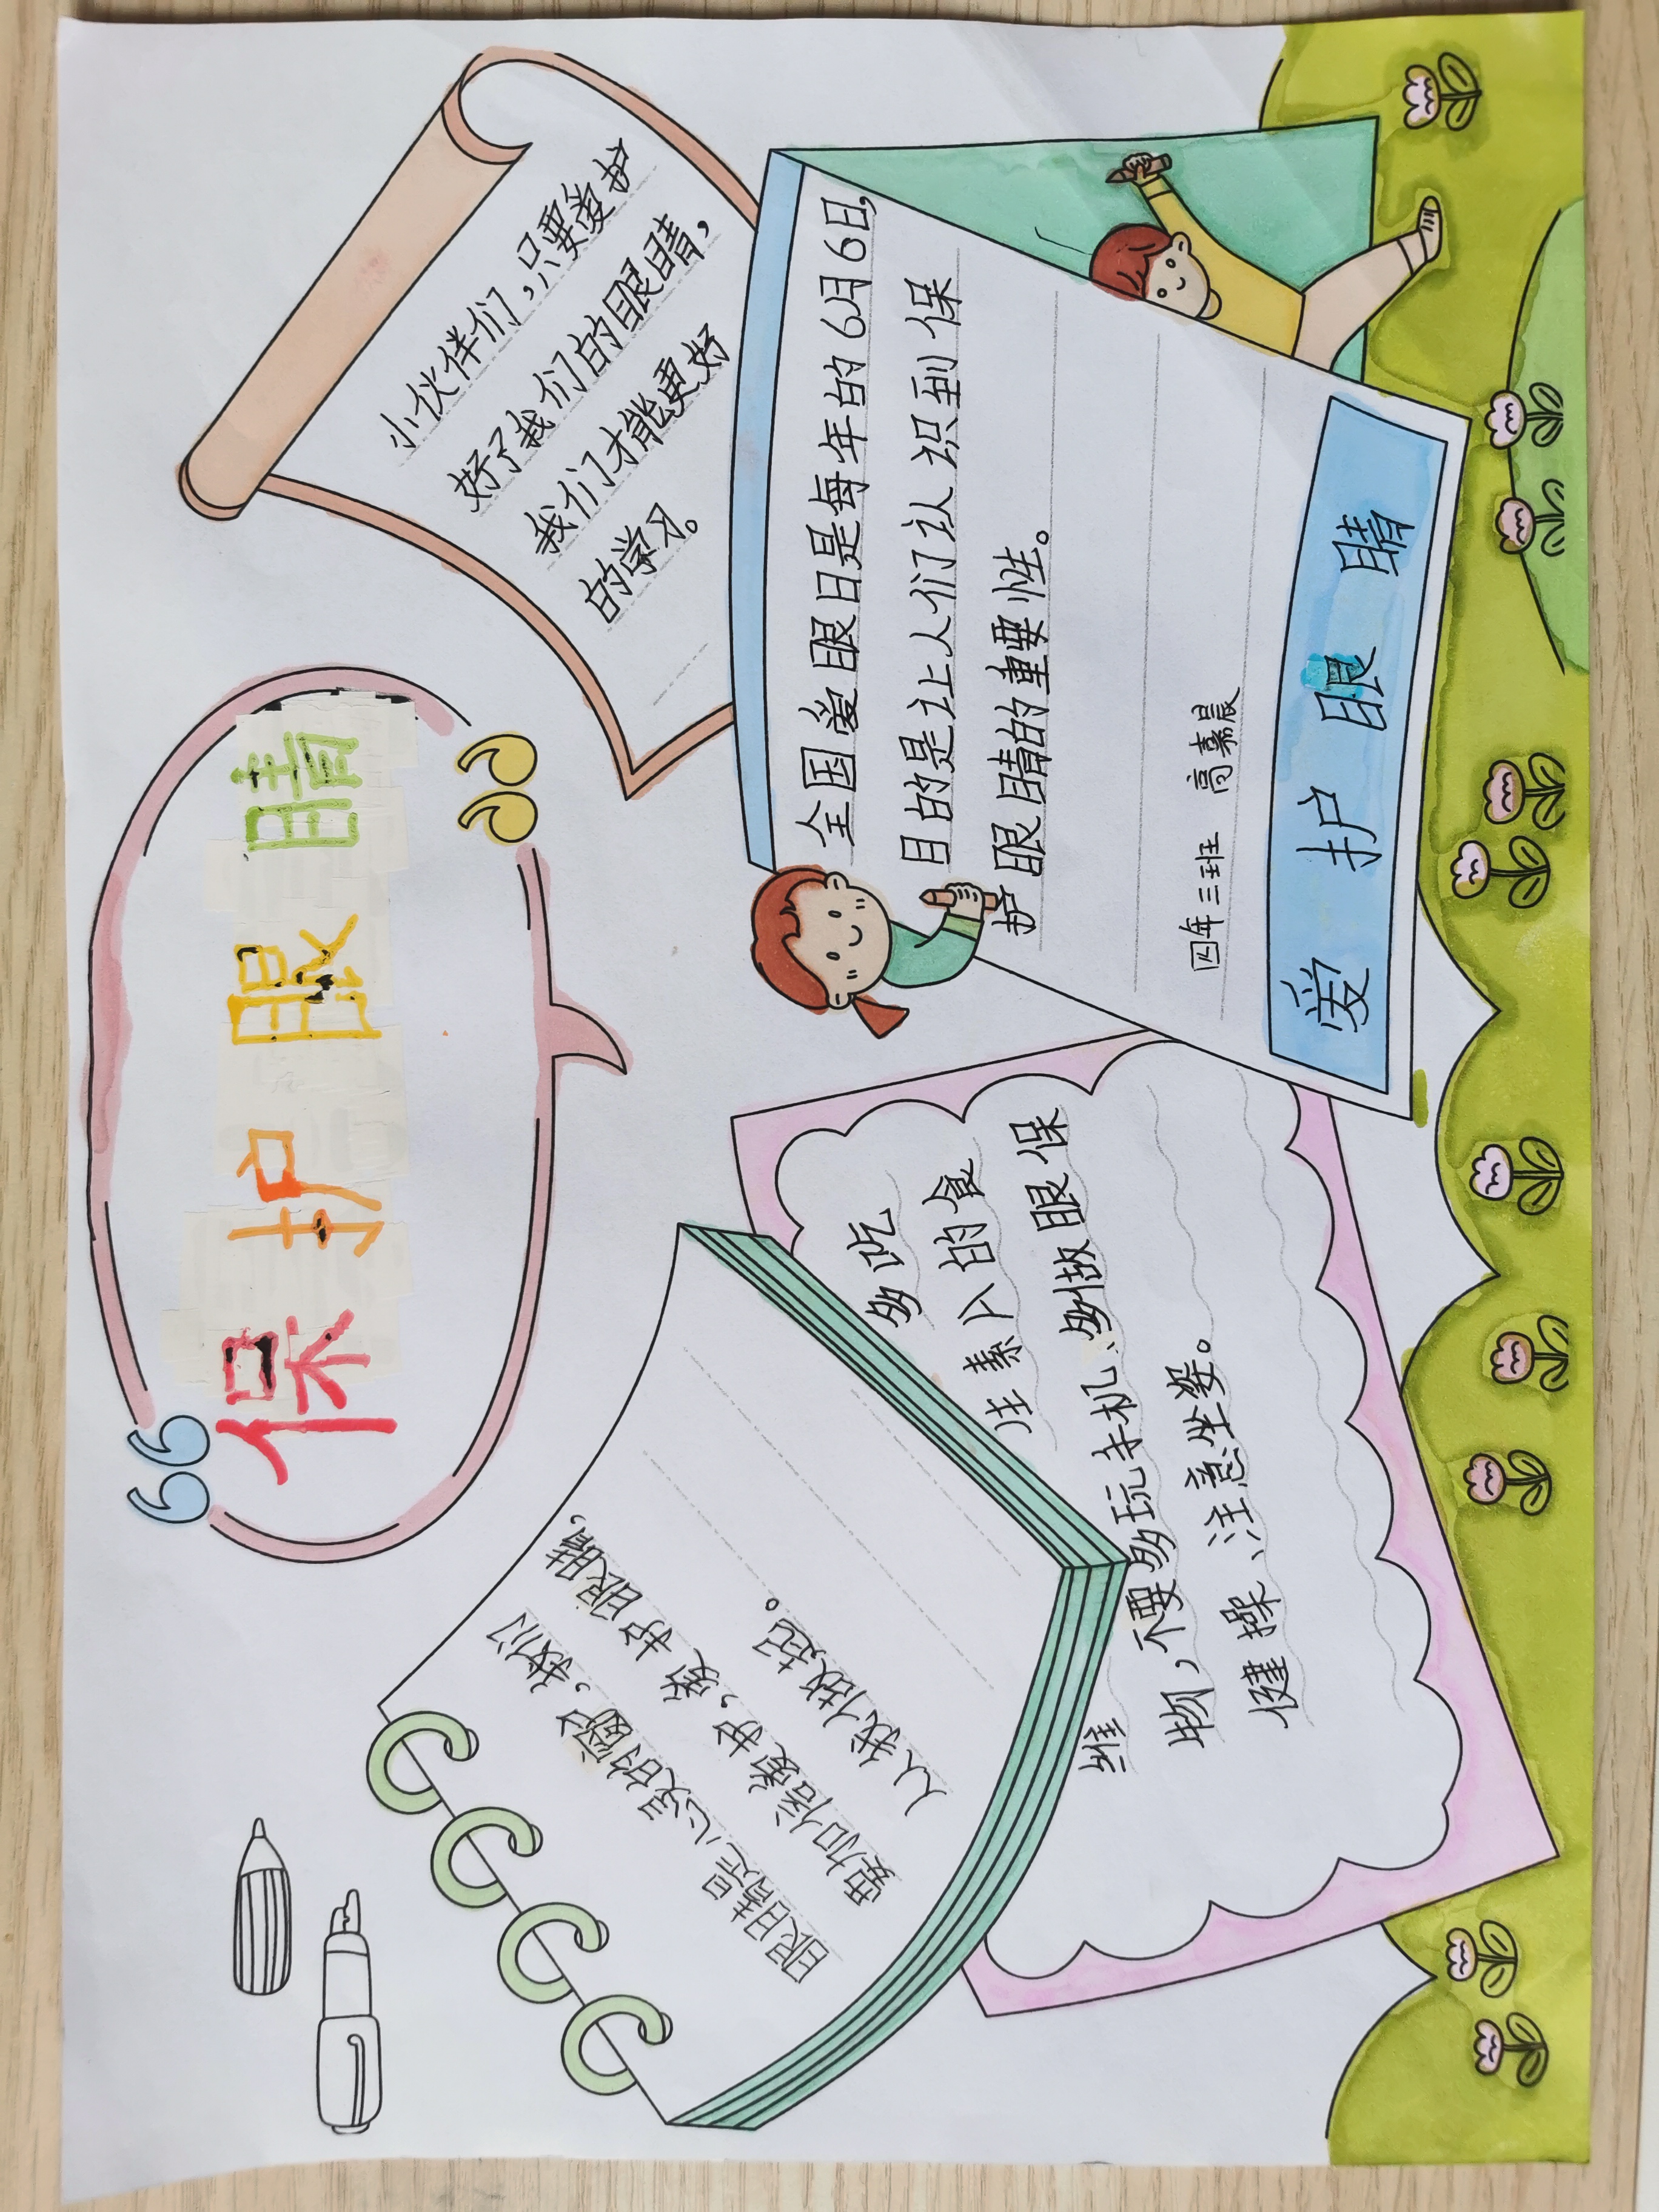 保护眼睛
眼睛是心灵的窗户，我们
要加倍爱护，爱护眼睛，
从我做起。
多吃
维生素A的食
物，不要多玩手机、多做眼保
健操、注意坐姿。
小伙伴们，只要爱护
好了我们的眼睛，
我们才能更好
的学习。
全国爱眼日是每年的6月6日，
目的是让人们认识到保
护眼睛的重要性。
四年三班 高嘉晨
爱护眼睛